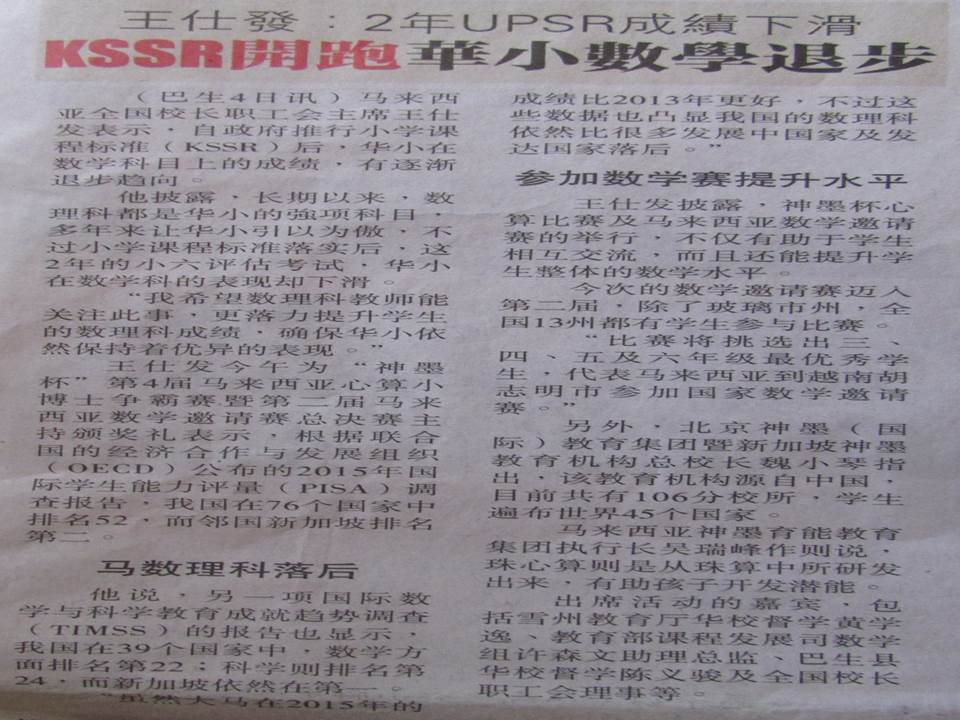 王仕發：2年UPSR成績下滑
KSSR開跑 華小數學退步
（巴生4日讯）马来西
亚全国校长职工会主席王仕
发表示，自政府推行小学课
程标准（KSSR）后，华小在
数学科目上的成绩，有逐渐
退步趋向。
他披露，长期以来，数
理科都是华小的強项科目，
多年来让华小引以为傲，不
过小学课程标准落实后，这
2年的小六评估考试，华小
在数学科的表现却下滑。
“我希望数理科教师能
关注此事，更落力提升学生
的数理科成绩，确保华小依
然保持着优异的表现。”
王仕发今午为“神墨
杯”第4届马来西亚心算小
博士争霸赛暨第二届马来
西亚数学邀请赛总决赛主
持颁奖礼表示，根据联合
国的经济合作与发展组织
（OECD）公布的2015年国
际学生能力评量（PISA）调
查报告，我国在76个国家中
排名52，而邻国新加坡排名
第二。
马数理科落后
他说，另一项国际数
学与科学教育成就趋势调查
（TIMSS）的报告也显示，
我国在39个国家中，数学方
面排名第22；科学则排名第
24，而新加坡依然在第一。
“虽然大马在2015年的
成绩比2013年更好，不过这
些数据也凸显我国的数理科
依然比很多发展中国家及发
达国家落后。”
参加数学赛提升水平
王仕发披露，神墨杯心
算比赛及马来西亚数学邀请
赛的举行，不仅有助于学生
相互交流，而且还能提升学
生整体的数学水平。
今次的数学邀请赛迈入
第二届，除了玻璃市州，全
国13州都有学生参与比赛。
“比赛将挑选出三、
四、五及六年级最优秀学
生，代表马来西亚到越南胡
志明市参加国家数学邀请
赛。”
另外，北京神墨（国
际）教育集团暨新加坡神墨
教育机构总校长魏小琴指
出，该教育机构源自中国，
目前共有106分校所，学生
遍布世界45个国家。
马来西亚神墨育能教育
集团执行长吴瑞峰作则说，
珠心算则是从珠算中所研发
出来，有助孩子开发潜能。
出席活动的嘉宾，包
括雪州教育厅华校督学黄学
逸、教育部课程发展司数学
组许森文助理总监、巴生县
华校督学陈义骏及全国校长
职工会理事等。